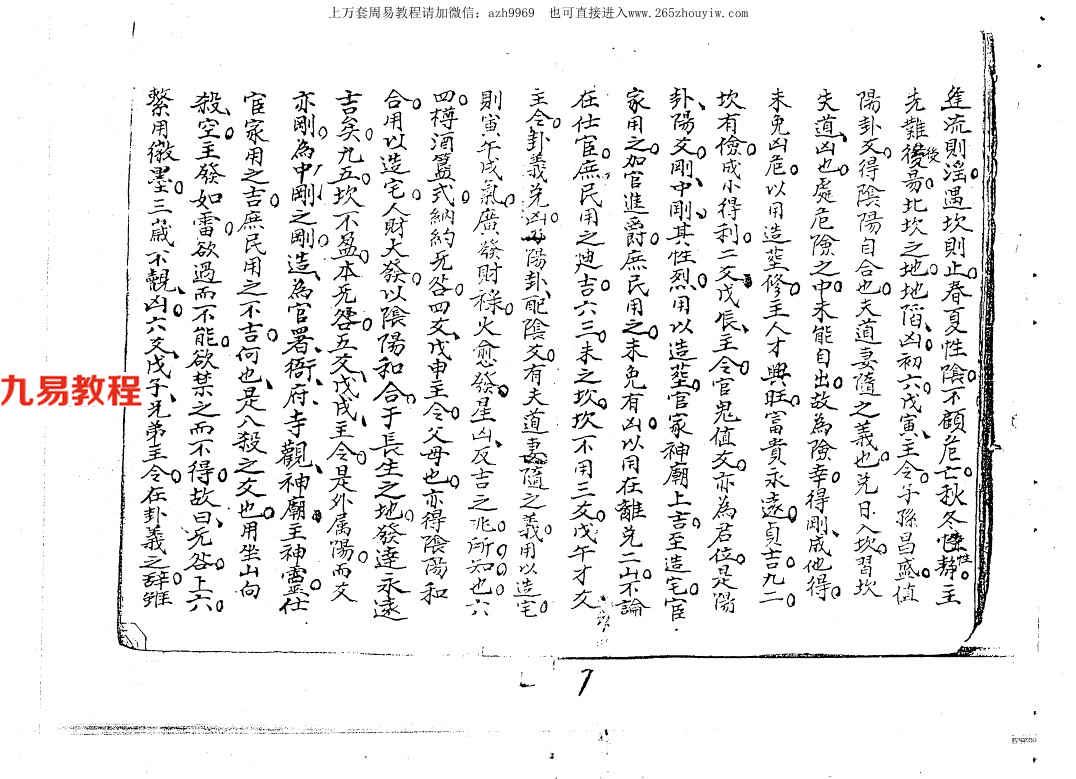 上万套周易教程请加微信：azh9969　也可直接进入www.265zhouyiw.com
逢流則淫遇坎則止。春夏性陰不顧危亡。秋冬性静。主
先難後易北坎之地。地陷凶初六戊寅主令子孫昌盛。值
陽卦爻得陰陽自合也。夫道妻隨之義也。先曰入坎。習坎
失道凶也。處危險之中。未能自出。故為險幸得剛。成他得。
未免凶危。以用造塋修。主人才興旺。富貴永遠。貞吉九二
坎有險。成小得利。二爻戊辰主令官鬼值爻。亦為君位。是陽
卦陽爻。剛中剛。其性烈。用以造塋。官家神廟上吉。至造宅。宦
家用之。加官進爵。庶民用之。未免有凶。以用在離兌二山。不論
在仕宦。庶民用之迪吉。六三來之坎坎。不用三爻戊午才爻
主令。卦義兌凶。陽卦配陰爻。有夫道妻隨之義。用以造宅。
則寅午戌氣。廣發財祿。火愈發。星凶反吉之兆。所知也。六
四樽酒簋式。納約旡咎。四爻戊申主令。父母也。亦得陰陽和
合。用以造宅。人財大發。以陰陽和合于長生之地。發達永遠
吉矣。九五坎不盈。本旡咎。五爻戊戌主令。是外属陽。而爻
亦剛。為中剛之剛。造為官署衙府寺觀神廟主神靈。仕
宦家用之吉。庶民用之不吉。何也。是八殺之爻也。用坐山向
殺空。主發如雷。欲過而不能。欲禁之而不得。故曰旡咎。上六
繫用徽墨。三歲不覿凶。六爻戊子兄弟主令。在卦義之辞。雖
九易教程
7